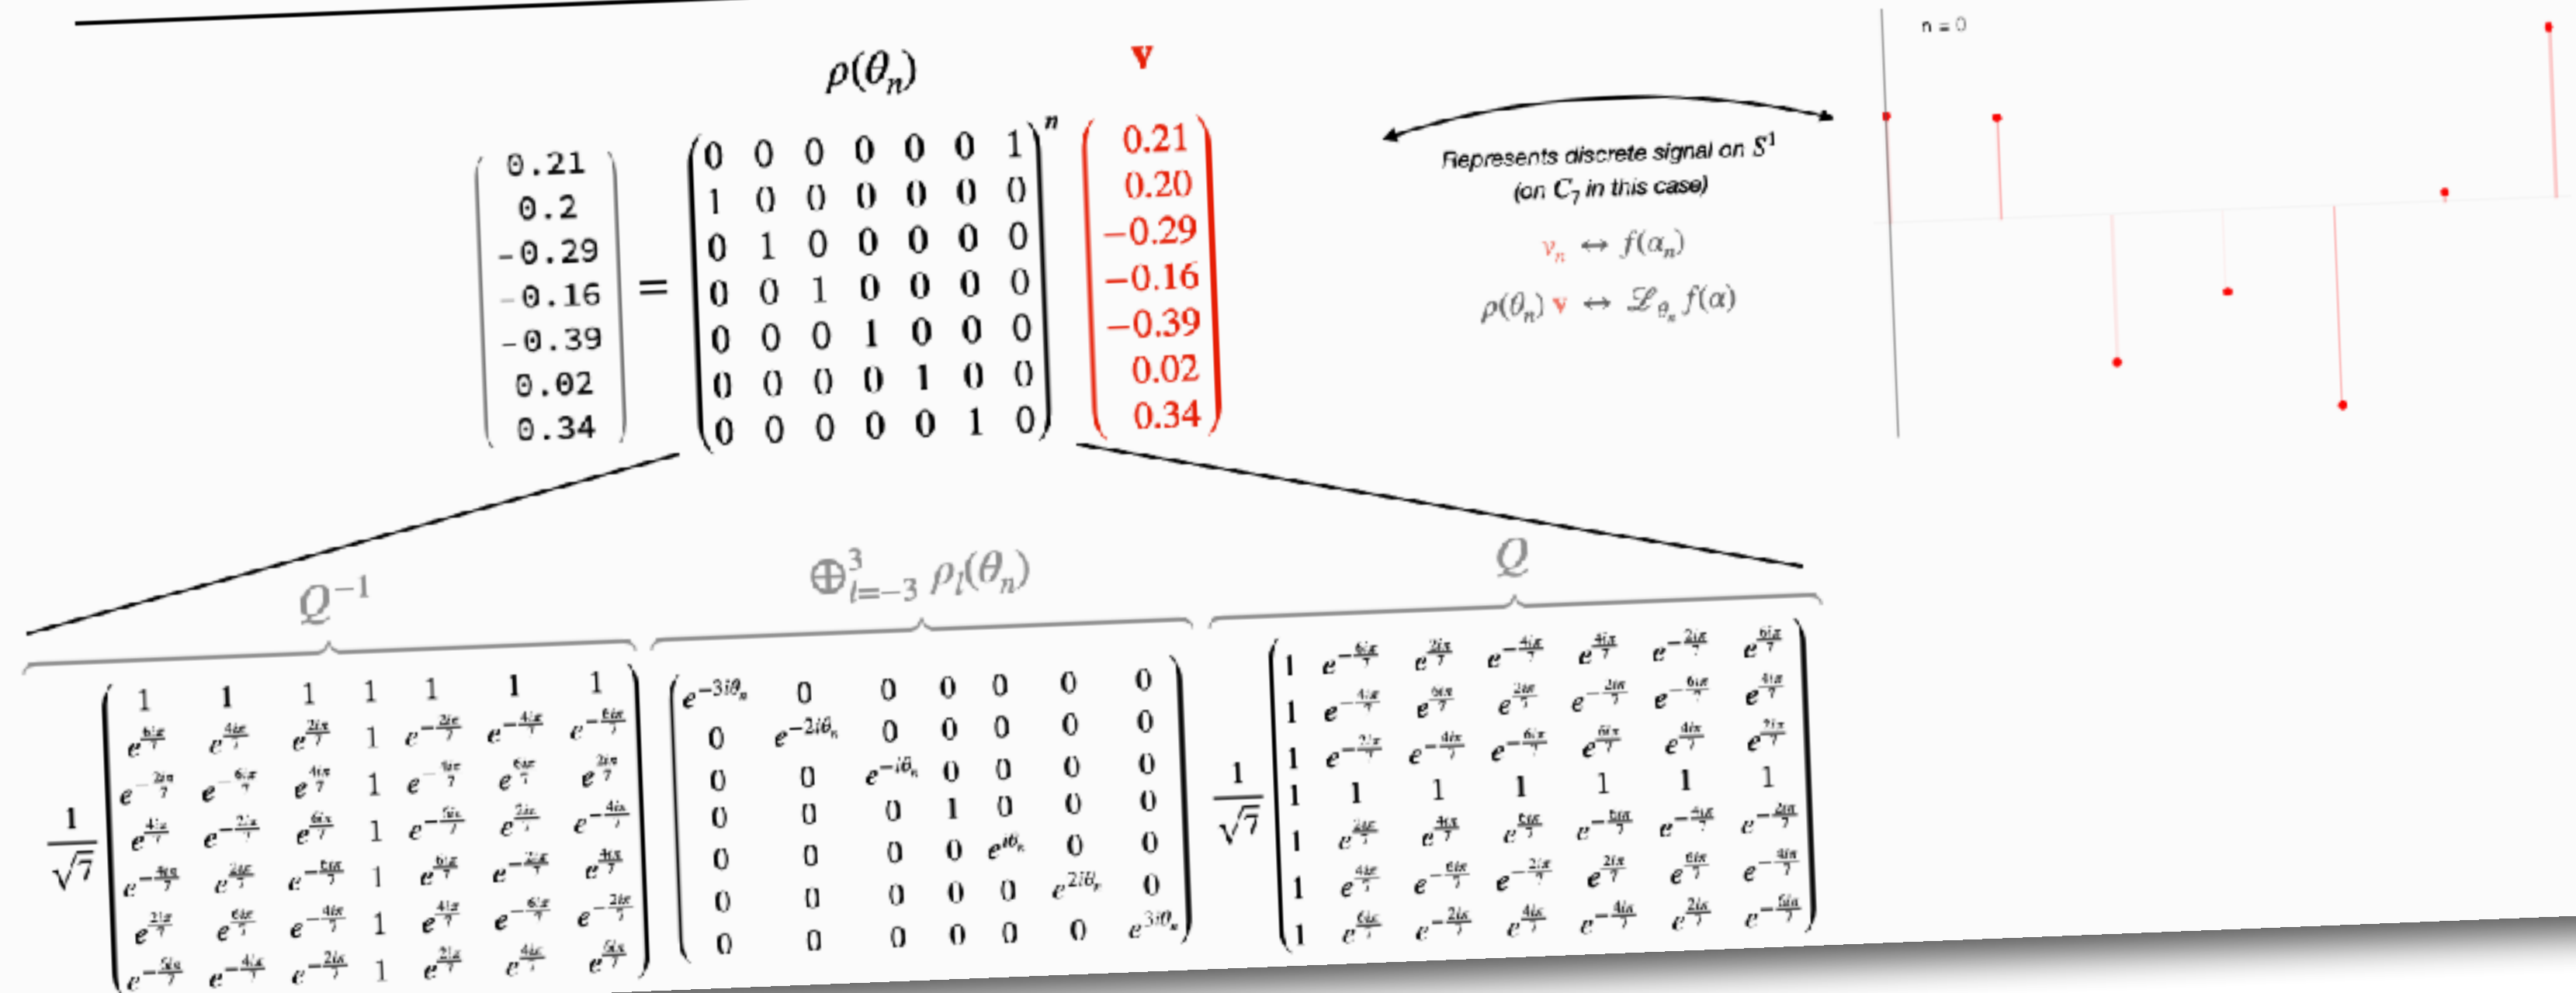 n = 0
ρ(θₙ) v
0.21
0.2
-0.29
-0.16
-0.39
0.02
0.34
=
0 0 0 0 0 0 1
1 0 0 0 0 0 0
0 1 0 0 0 0 0
0 0 1 0 0 0 0
0 0 0 1 0 0 0
0 0 0 0 1 0 0
0 0 0 0 0 1 0
n
0.21
0.20
−0.29
−0.16
−0.39
0.02
0.34
Represents discrete signal on S¹
(on C₇ in this case)
vₙ ↔ f(αₙ)
ρ(θₙ) v ↔ ℒ_θₙ f(α)
Q⁻¹
⊕³_{l=−3} ρ_l(θₙ)
Q
1/√7
1 1 1 1 1 1 1
e^{6iπ/7} e^{4iπ/7} e^{2iπ/7} 1 e^{−2iπ/7} e^{−4iπ/7} e^{−6iπ/7}
e^{−2iπ/7} e^{−6iπ/7} e^{4iπ/7} 1 e^{−4iπ/7} e^{6iπ/7} e^{2iπ/7}
e^{4iπ/7} e^{−2iπ/7} e^{6iπ/7} 1 e^{−6iπ/7} e^{2iπ/7} e^{−4iπ/7}
e^{−4iπ/7} e^{2iπ/7} e^{−6iπ/7} 1 e^{6iπ/7} e^{−2iπ/7} e^{4iπ/7}
e^{2iπ/7} e^{6iπ/7} e^{−4iπ/7} 1 e^{4iπ/7} e^{−6iπ/7} e^{−2iπ/7}
e^{−6iπ/7} e^{−4iπ/7} e^{−2iπ/7} 1 e^{2iπ/7} e^{4iπ/7} e^{6iπ/7}
e^{−3iθₙ} 0 0 0 0 0 0
0 e^{−2iθₙ} 0 0 0 0 0
0 0 e^{−iθₙ} 0 0 0 0
0 0 0 1 0 0 0
0 0 0 0 e^{iθₙ} 0 0
0 0 0 0 0 e^{2iθₙ} 0
0 0 0 0 0 0 e^{3iθₙ}
1/√7
1 e^{−6iπ/7} e^{2iπ/7} e^{−4iπ/7} e^{4iπ/7} e^{−2iπ/7} e^{6iπ/7}
1 e^{−4iπ/7} e^{6iπ/7} e^{2iπ/7} e^{−2iπ/7} e^{−6iπ/7} e^{4iπ/7}
1 e^{−2iπ/7} e^{−4iπ/7} e^{−6iπ/7} e^{6iπ/7} e^{4iπ/7} e^{2iπ/7}
1 1 1 1 1 1 1
1 e^{2iπ/7} e^{4iπ/7} e^{6iπ/7} e^{−6iπ/7} e^{−4iπ/7} e^{−2iπ/7}
1 e^{4iπ/7} e^{−6iπ/7} e^{−2iπ/7} e^{2iπ/7} e^{6iπ/7} e^{−4iπ/7}
1 e^{6iπ/7} e^{−2iπ/7} e^{4iπ/7} e^{−4iπ/7} e^{2iπ/7} e^{−6iπ/7}